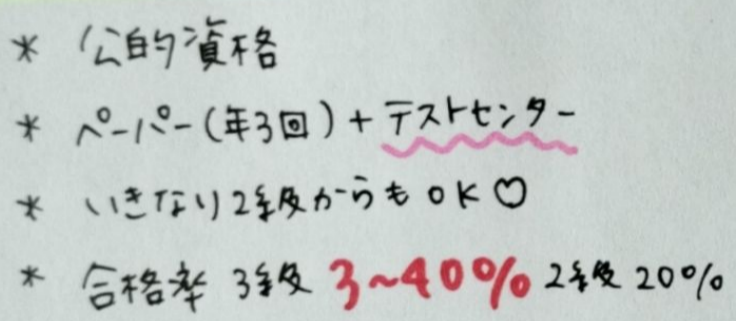 * 公的資格
* ペーパー(年3回)+テストセンター
* いきなり2級からもOK♡
* 合格率 3級 3~40% 2級 20%